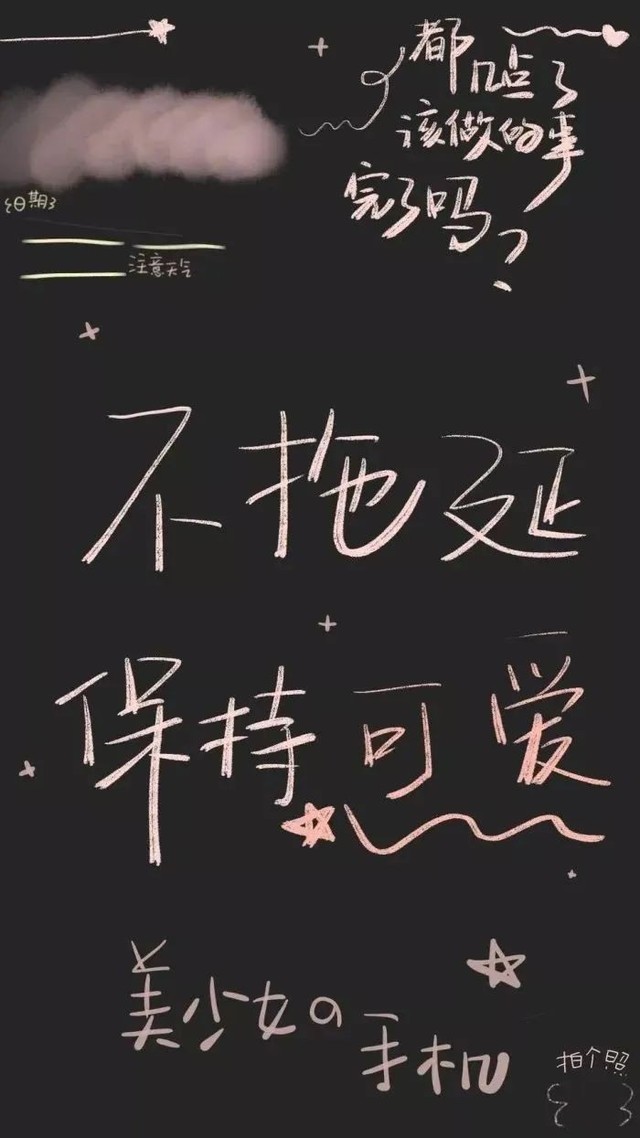 都几点了
该做的事
完了吗?
{日期}
注意天气
不拖延
保持可爱
美少女の
手机
拍个照
{ }